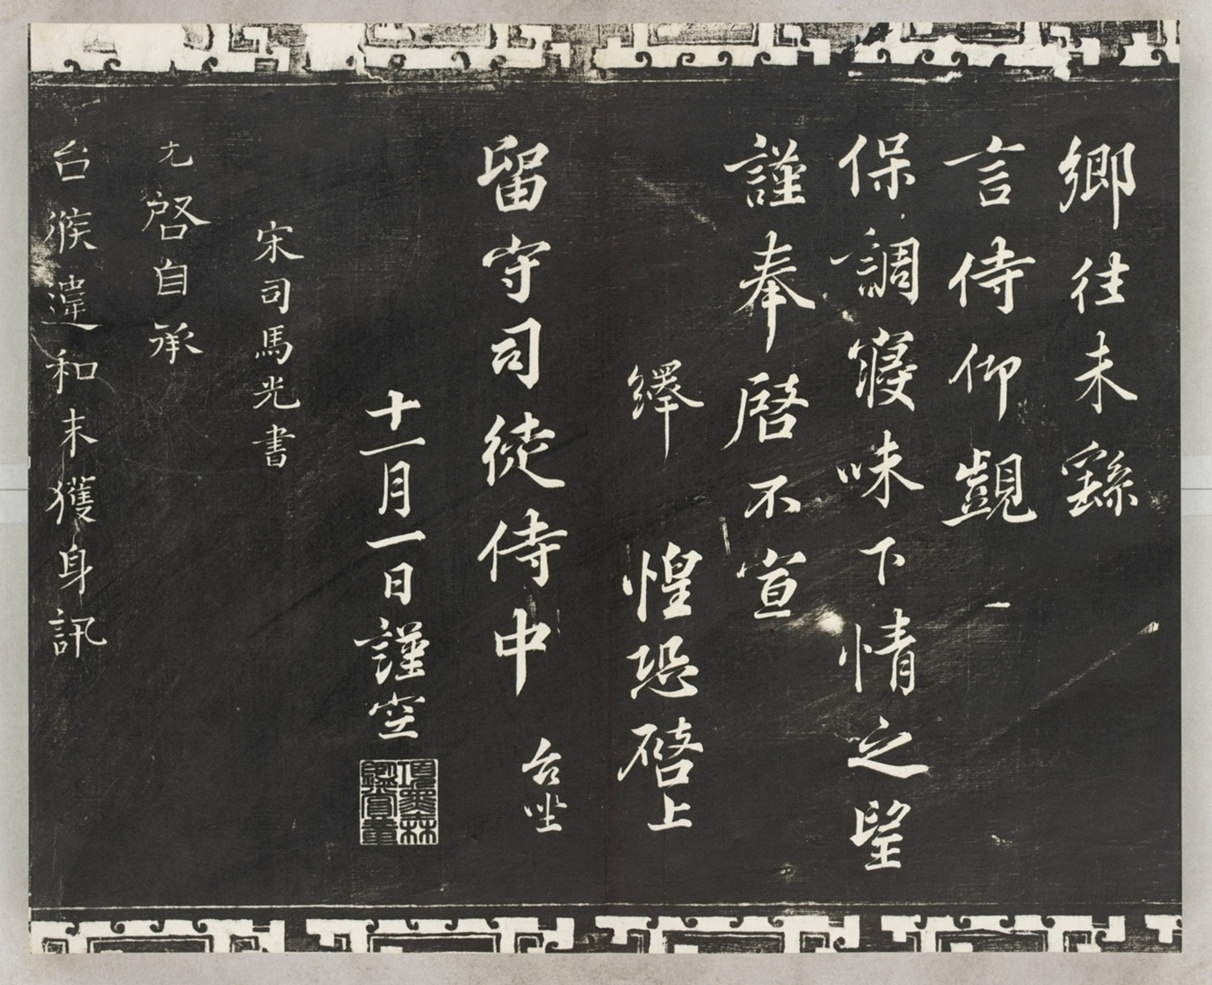 鄉往未繇
言侍仰覬
保調寢味下情之望
謹奉啓不宣
繹惶恐啓上
留守司徒侍中 台坐
十一月一日謹空
宋司馬光書
光啓自承
台候違和未獲身訊